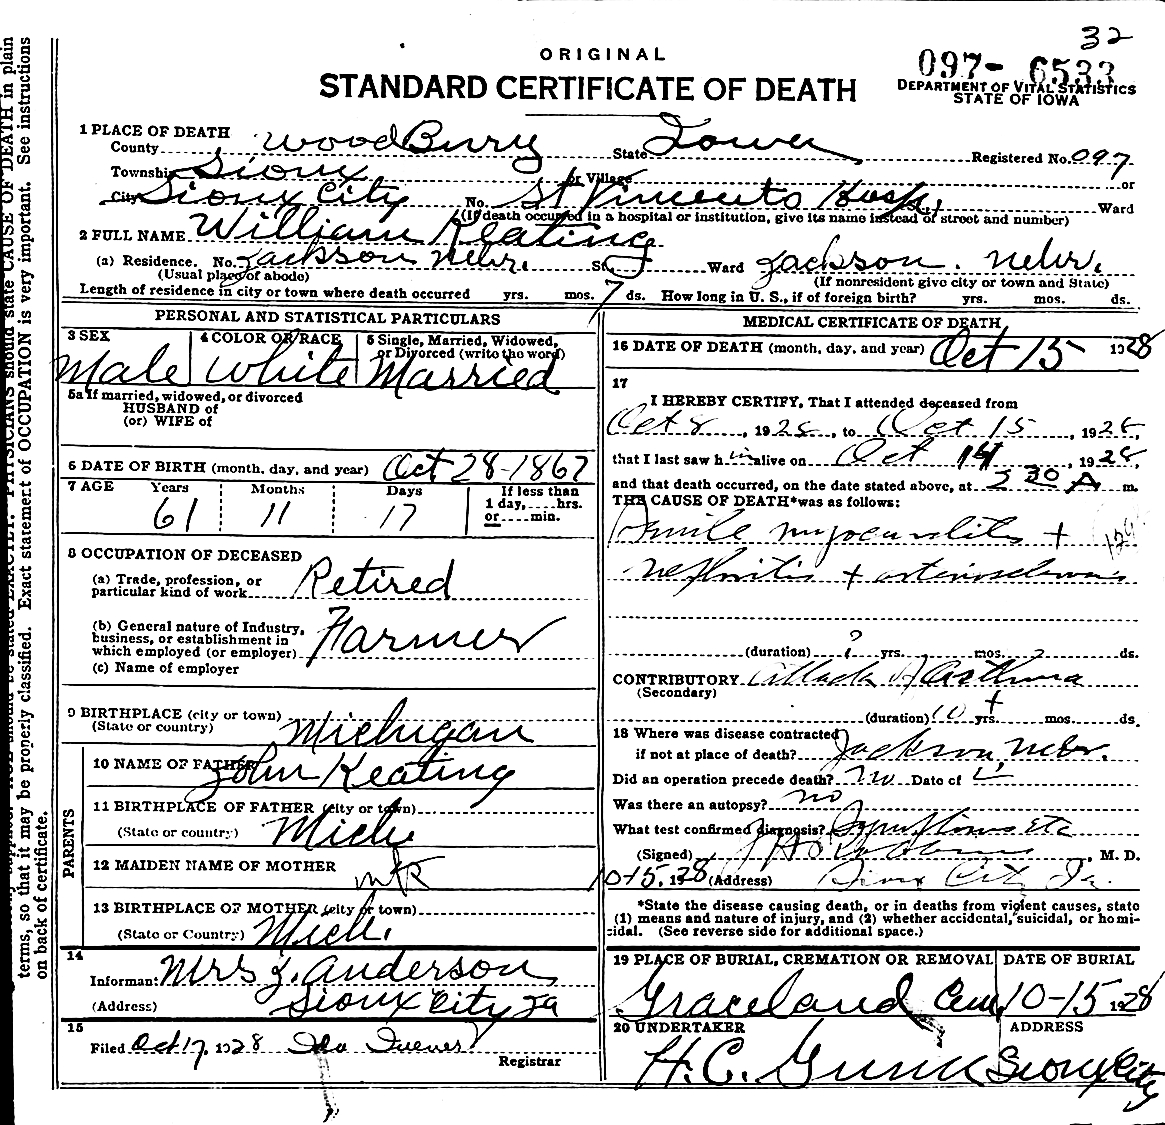 32
ORIGINAL
097- 6533
STANDARD CERTIFICATE OF DEATH
DEPARTMENT OF VITAL STATISTICS
STATE OF IOWA
1 PLACE OF DEATH
County WoodBurry State Iowa Registered No. 097
Township Sioux or Village or
City Sioux City No. St Vincents Hosp. Ward
(If death occurred in a hospital or institution, give its name instead of street and number)
2 FULL NAME William Keating
(a) Residence. No. Jackson Nebr. St. Ward Jackson. Nebr.
(Usual place of abode) (If nonresident give city or town and State)
Length of residence in city or town where death occurred yrs. mos. 7 ds. How long in U. S., if of foreign birth? yrs. mos. ds.
PERSONAL AND STATISTICAL PARTICULARS
3 SEX 4 COLOR OR RACE 5 Single, Married, Widowed, or Divorced (write the word)
Male White Married
5a If married, widowed, or divorced
HUSBAND of
(or) WIFE of
6 DATE OF BIRTH (month, day, and year) Oct 28-1867
7 AGE Years Months Days If less than
1 day,....hrs.
or....min.
61 11 17
8 OCCUPATION OF DECEASED
(a) Trade, profession, or
particular kind of work Retired
(b) General nature of Industry,
business, or establishment in
which employed (or employer) Farmer
(c) Name of employer
9 BIRTHPLACE (city or town)
(State or country) Michigan
PARENTS
10 NAME OF FATHER John Keating
11 BIRTHPLACE OF FATHER (city or town)
(State or country) Mich
12 MAIDEN NAME OF MOTHER
13 BIRTHPLACE OF MOTHER (city or town)
(State or Country) Mich.
14
Informant Mrs J. Anderson
(Address) Sioux City Ia
15
Filed Oct 17, 1928 Ida
Registrar
MEDICAL CERTIFICATE OF DEATH
16 DATE OF DEATH (month, day, and year) Oct 15 1928
17
I HEREBY CERTIFY, That I attended deceased from
Oct 8, 1928, to Oct 15, 1928,
that I last saw him alive on Oct 14, 1928,
and that death occurred, on the date stated above, at 530 A m.
THE CAUSE OF DEATH* was as follows:
Senile myocarditis +
nephritis + arteriosclerosis
(duration) ? yrs. mos. ds.
CONTRIBUTORY Attack of Asthma
(Secondary)
(duration) 10 + yrs. mos. ds.
18 Where was disease contracted
if not at place of death? Jackson, Nebr.
Did an operation precede death? no Date of
Was there an autopsy? no
What test confirmed diagnosis? Symptoms etc
(Signed) , M. D.
10-15, 1928 (Address) Sioux City Ia.
*State the disease causing death, or in deaths from violent causes, state
(1) means and nature of injury, and (2) whether accidental, suicidal, or homi-
cidal. (See reverse side for additional space.)
19 PLACE OF BURIAL, CREMATION OR REMOVAL DATE OF BURIAL
Graceland Cem. 10-15 1928
20 UNDERTAKER ADDRESS
H.C. Gunn Sioux City
terms, so that it may be properly classified. Exact statement of OCCUPATION is very important. See instructions
on back of certificate.